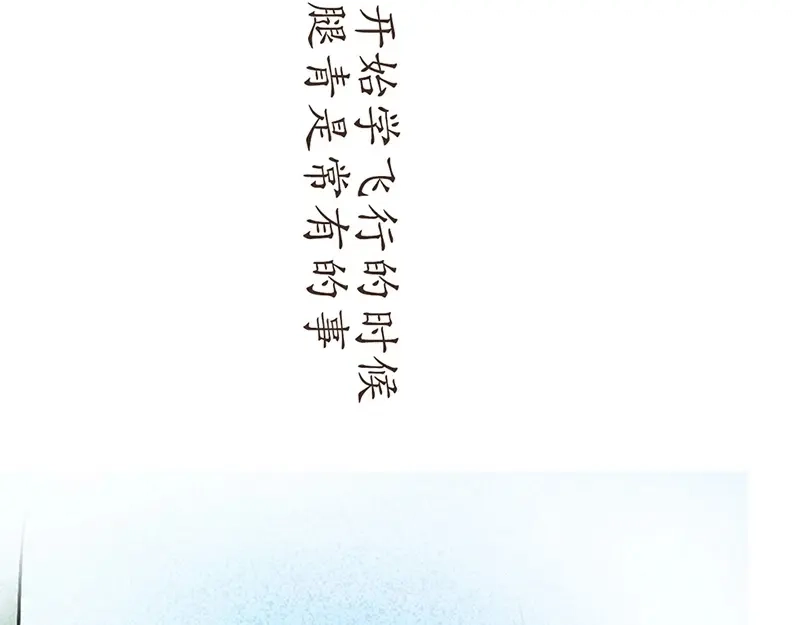 开始学飞行的时候
腿青是常有的事